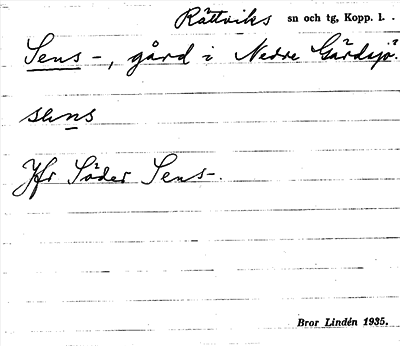 Rättviks sn och tg, Kopp. l.
Sens-, gård i Nedre Gärdsjö.
sens
Jfr Söder Sens-.
Bror Lindén 1935.